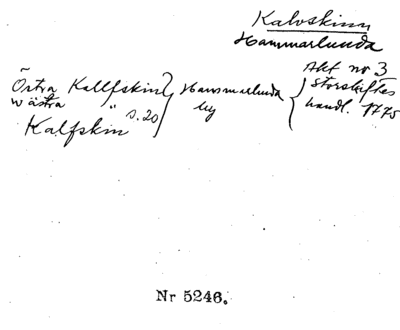 Kalvskinn
Hammarlunda
Akt nr 3
Storskiftes
handl. 1775
Östra Kallfskin
Wästra "
s. 20
Kalfskin
Hammarlunda
by
Nr 5246.